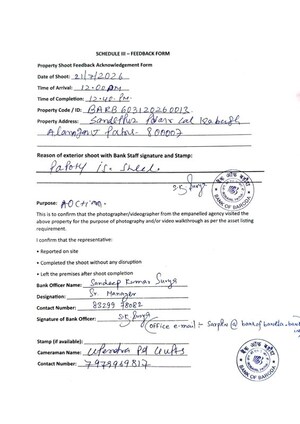 SCHEDULE III – FEEDBACK FORM
Property Shoot Feedback Acknowledgement Form
Date of Shoot: 21/7/2026
Time of Arrival: 12-00 PM
Time of Completion: 12-40 PM
Property Code / ID: BARB603120260013
Property Address:
800007
Reason of exterior shoot with Bank Staff signature and Stamp:
is
Purpose:
This is to confirm that the photographer/videographer from the empanelled agency visited the
above property for the purpose of photography and/or video walkthrough as per the asset listing
requirement.
I confirm that the representative:
• Reported on site
• Completed the shoot without any disruption
• Left the premises after shoot completion
Bank Officer Name: Sandeep Kumar Surya
Designation: Sr. Manager
Contact Number: 83299 78082
Signature of Bank Officer:
Office e-mail :-
Stamp (if available):
BANK OF BARODA
Cameraman Name: Upendra Pd Gupta
Contact Number: 7979969817